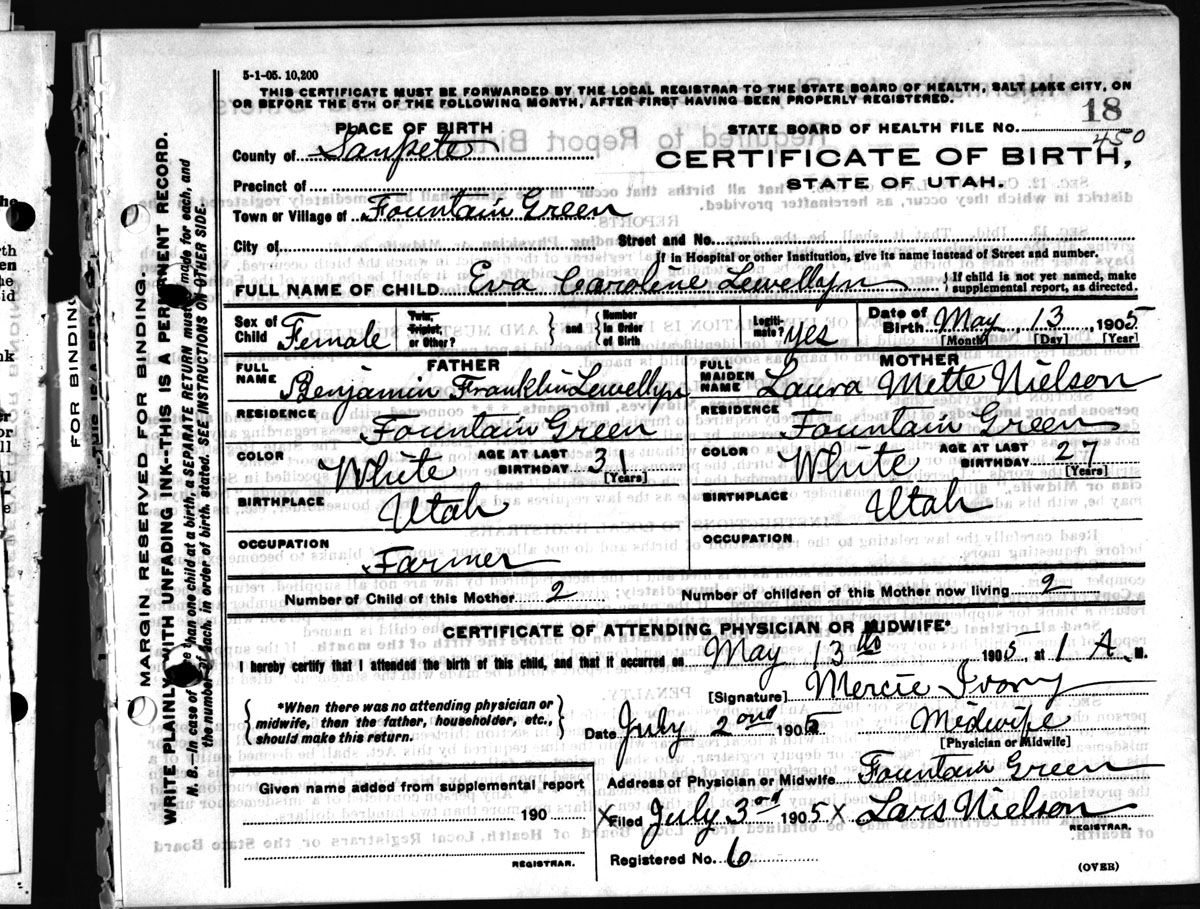 5-1-05. 10,200
THIS CERTIFICATE MUST BE FORWARDED BY THE LOCAL REGISTRAR TO THE STATE BOARD OF HEALTH, SALT LAKE CITY, ON
OR BEFORE THE 5TH OF THE FOLLOWING MONTH, AFTER FIRST HAVING BEEN PROPERLY REGISTERED.
18
PLACE OF BIRTH
STATE BOARD OF HEALTH FILE NO.
450
County of Sanpete
CERTIFICATE OF BIRTH,
STATE OF UTAH.
Precinct of
Town or Village of Fountain Green
City of
Street and No.
[If in Hospital or other Institution, give its name instead of Street and number.
FULL NAME OF CHILD Eva Carolene Lewellyn
{If child is not yet named, make supplemental report, as directed.
Sex of Child Female
Twin, Triplet, or Other? } and { Number in Order of Birth
Legitimate? yes
Date of Birth May 13 1905
[Month] [Day] [Year]
FATHER
FULL NAME Benjamin Franklin Lewellyn
RESIDENCE Fountain Green
COLOR White AGE AT LAST BIRTHDAY 31 [Years]
BIRTHPLACE Utah
OCCUPATION Farmer
MOTHER
FULL MAIDEN NAME Laura Mette Nielson
RESIDENCE Fountain Green
COLOR White AGE AT LAST BIRTHDAY 27 [Years]
BIRTHPLACE Utah
OCCUPATION
Number of Child of this Mother 2 Number of children of this Mother now living 2
CERTIFICATE OF ATTENDING PHYSICIAN OR MIDWIFE*
I hereby certify that I attended the birth of this child, and that it occurred on May 13th 1905, at 1 A. M.
{ *When there was no attending physician or
midwife, then the father, householder, etc.,
should make this return. }
[Signature] Mercie Ivory
Date July 2ond 1905 Midwife
[Physician or Midwife]
Given name added from supplemental report
190
REGISTRAR.
Address of Physician or Midwife Fountain Green
X Filed July 3rd 1905 X Lars Nielson
REGISTRAR.
Registered No. 6
(OVER)
MARGIN RESERVED FOR BINDING
WRITE PLAINLY WITH UNFADING INK--THIS IS A PERMANENT RECORD.
N. B.--In case of more than one child at a birth, a SEPARATE RETURN must be made for each, and
the number of each, in order of birth, stated. SEE INSTRUCTIONS ON OTHER SIDE.
FOR BINDING